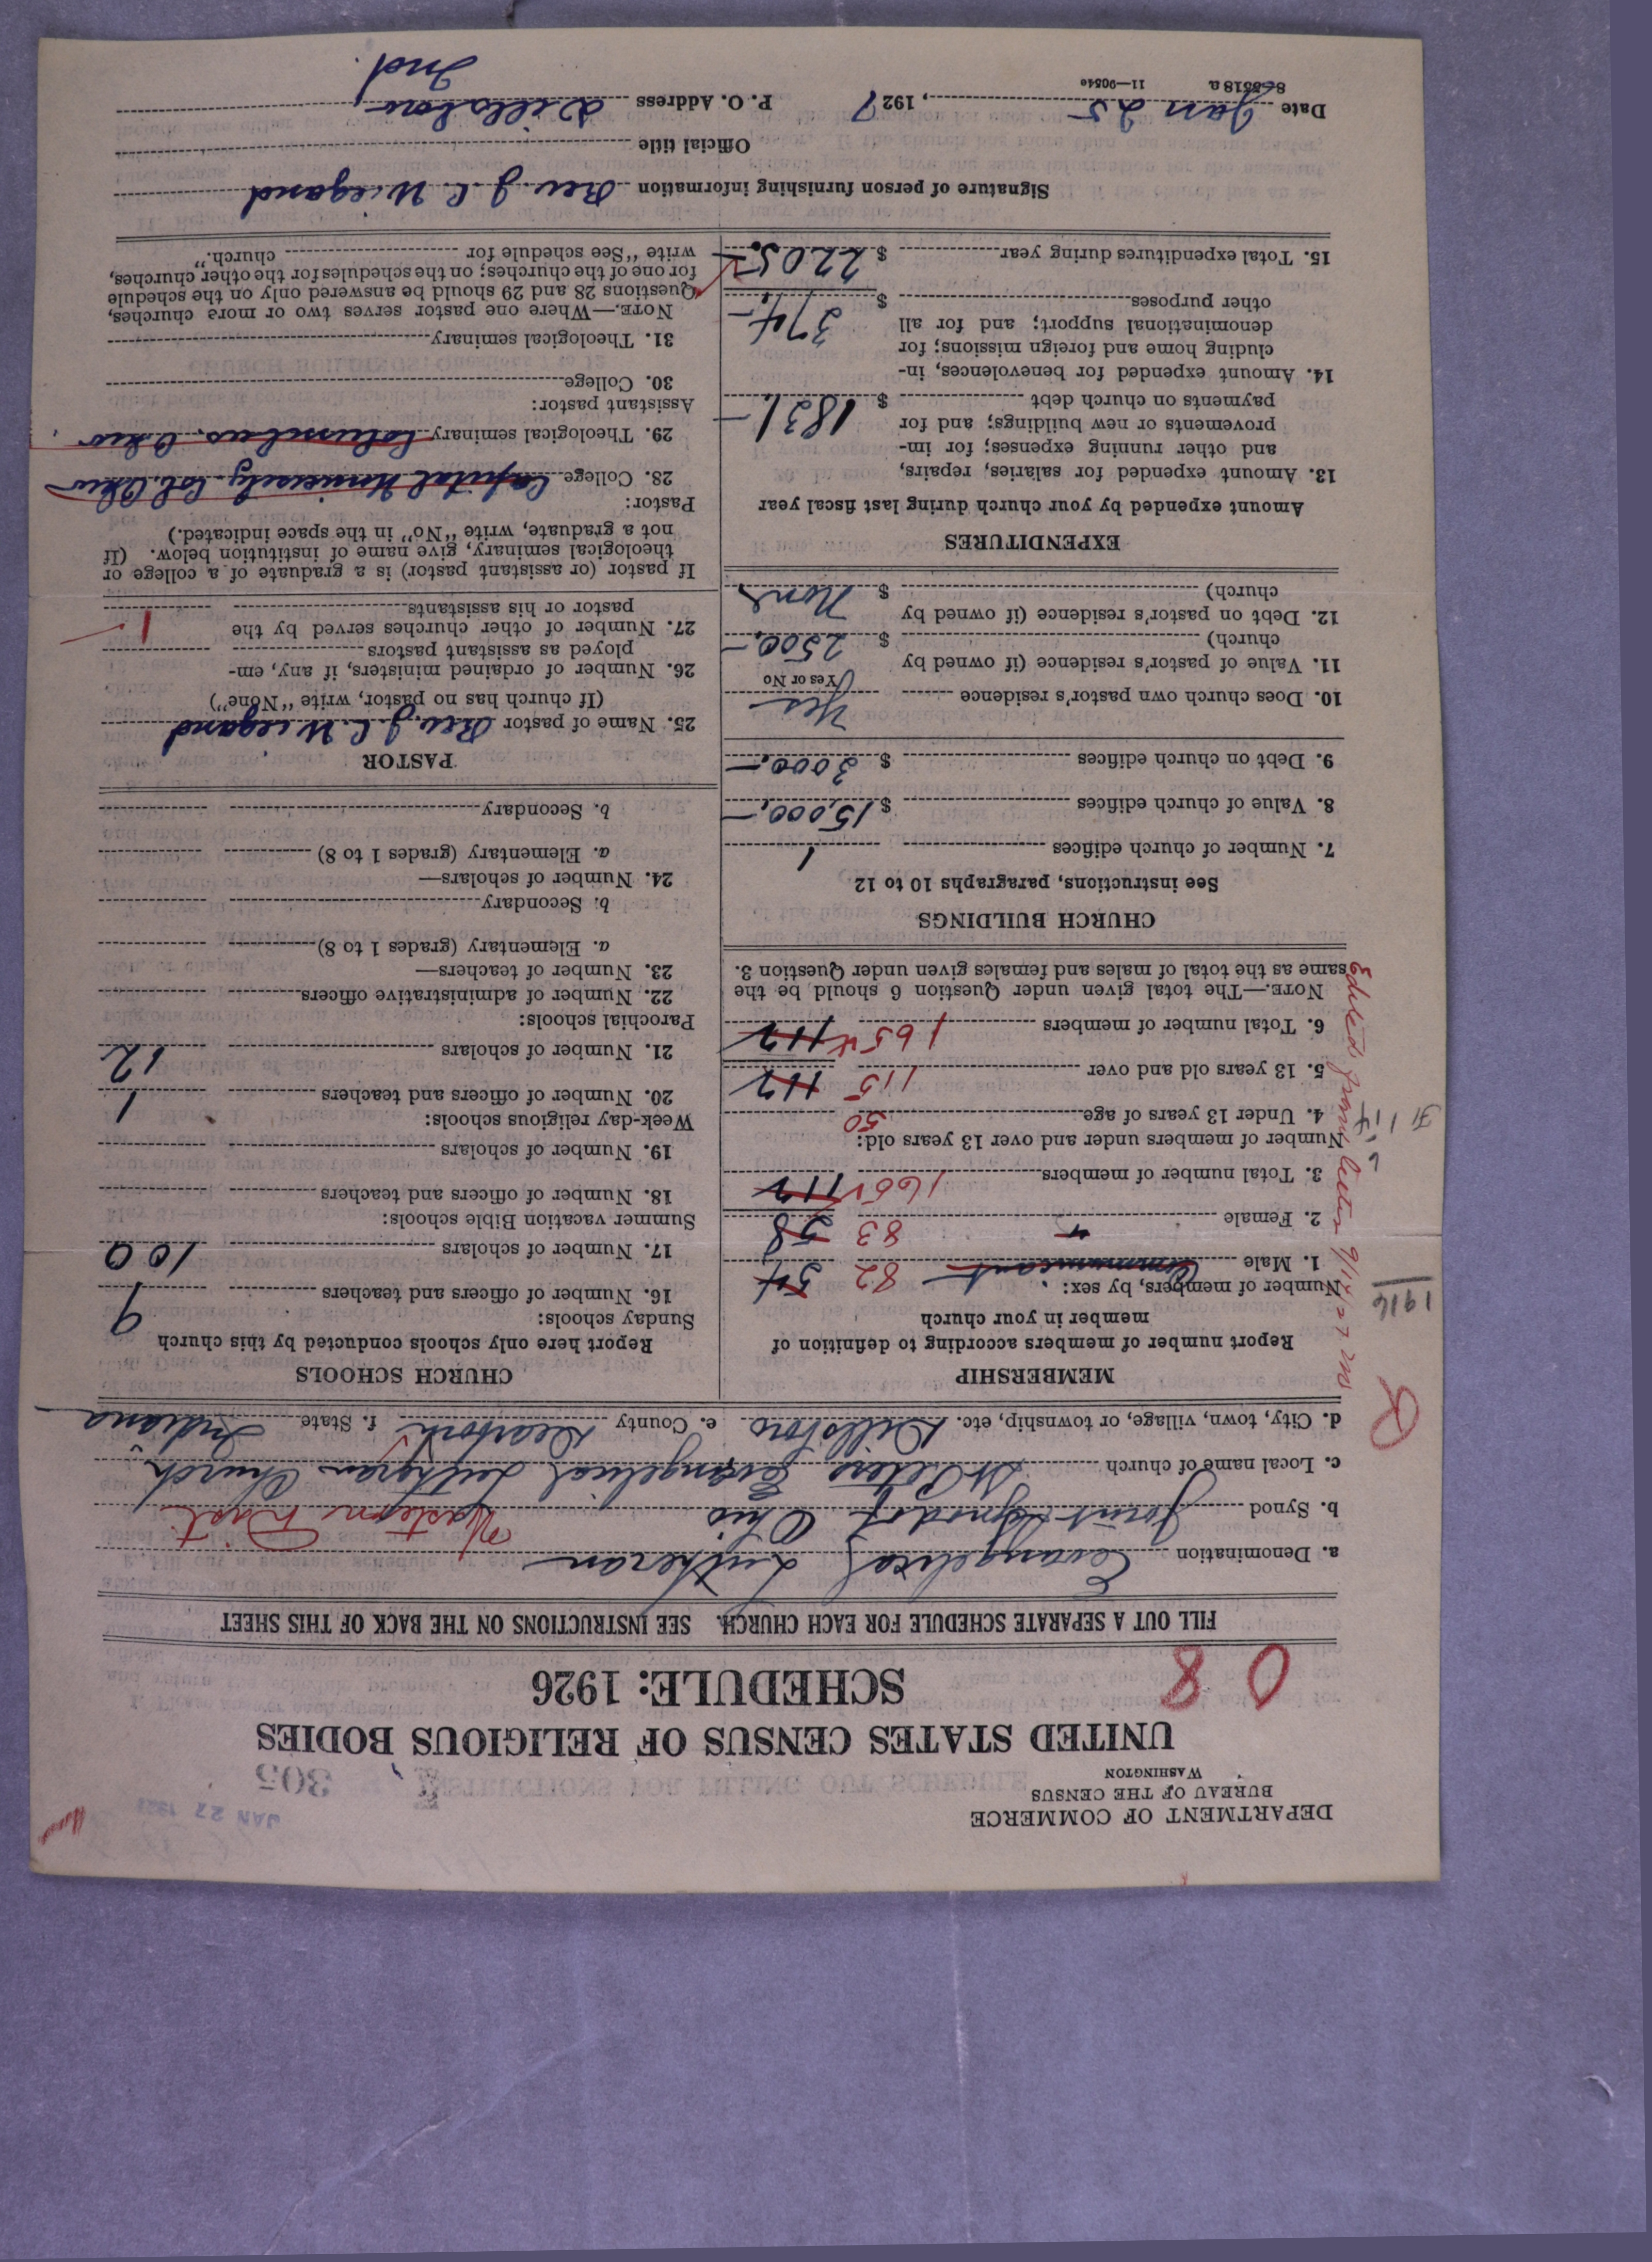 DEPARTMENT OF COMMERCE
BUREAU OF THE CENSUS
WASHINGTON
JAN 27 192
305
UNITED STATES CENSUS OF RELIGIOUS BODIES
SCHEDULE: 1926
0 8
FILL OUT A SEPARATE SCHEDULE FOR EACH CHURCH. SEE INSTRUCTIONS ON THE BACK OF THIS SHEET
a. Denomination Evangelical Lutheran
b. Synod Joint Synod of Ohio Western Dist.
c. Local name of church St Peters Evangelical Lutheran Church
d. City, town, village, or township, etc. Dillsboro e. County Dearborn f. State Indiana
R
1916
Edited from letter 9/17/27
MEMBERSHIP
Report number of members according to definition of
member in your church
Number of members, by sex:
1. Male Communicant 82 54
2. Female 83 58
3. Total number of members 165 112
Number of members under and over 13 years old:
4. Under 13 years of age 50
5. 13 years old and over 115 112
6. Total number of members 165 112
NOTE.—The total given under Question 6 should be the
same as the total of males and females given under Question 3.
CHURCH BUILDINGS
See instructions, paragraphs 10 to 12
7. Number of church edifices 1
8. Value of church edifices $ 15,000.—
9. Debt on church edifices $ 3000.—
10. Does church own pastor's residence Yes
Yes or No
11. Value of pastor's residence (if owned by
church) $ 2500.—
12. Debt on pastor's residence (if owned by
church) $ None
EXPENDITURES
Amount expended by your church during last fiscal year
13. Amount expended for salaries, repairs,
and other running expenses; for im-
provements or new buildings; and for
payments on church debt $ 1831.—
14. Amount expended for benevolences, in-
cluding home and foreign missions; for
denominational support; and for all
other purposes $ 374.—
15. Total expenditures during year $ 2205.—
CHURCH SCHOOLS
Report here only schools conducted by this church
Sunday schools:
16. Number of officers and teachers 9
17. Number of scholars 100
Summer vacation Bible schools:
18. Number of officers and teachers
19. Number of scholars
Week-day religious schools:
20. Number of officers and teachers 1
21. Number of scholars 12
Parochial schools:
22. Number of administrative officers
23. Number of teachers—
a. Elementary (grades 1 to 8)
b. Secondary
24. Number of scholars—
a. Elementary (grades 1 to 8)
b. Secondary
PASTOR
25. Name of pastor Rev. J. C. Wiegand
(If church has no pastor, write "None")
26. Number of ordained ministers, if any, em-
ployed as assistant pastors
27. Number of other churches served by the
pastor or his assistants 1
If pastor (or assistant pastor) is a graduate of a college or
theological seminary, give name of institution below. (If
not a graduate, write "No" in the space indicated.)
Pastor:
28. College Capital University Col. Ohio
29. Theological seminary Columbus, Ohio
Assistant pastor:
30. College
31. Theological seminary
NOTE.—Where one pastor serves two or more churches,
Questions 28 and 29 should be answered only on the schedule
for one of the churches; on the schedules for the other churches,
write "See schedule for church."
Signature of person furnishing information Rev. J. C. Wiegand
Official title
Date Jan 25, 1927 P. O. Address Dillsboro
Ind.
11—9054e